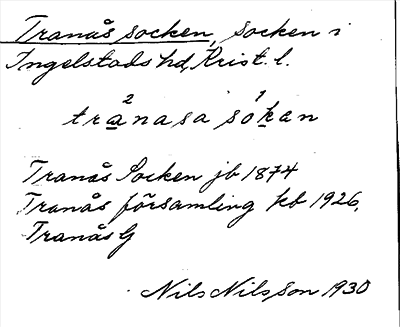 Tranås socken, socken i
Ingelstads hd, Krist. l.
2 1
tranasa sókan
Tranås Socken jb 1874
Tranås församling kb 1926,
Tranås G
Nils Nilsson 1930